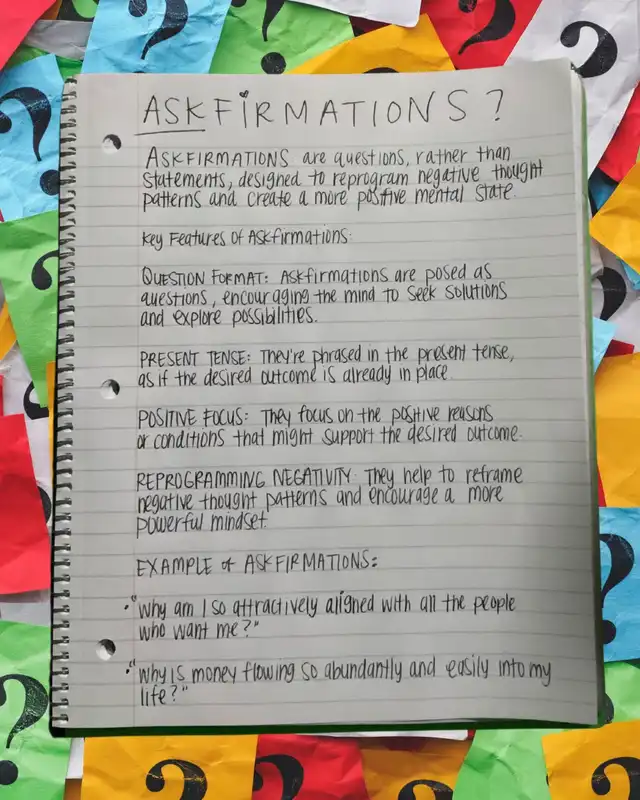 ASKFIRMATIONS?
ASKFIRMATIONS are questions, rather than
statements, designed to reprogram negative thought
patterns and create a more positive mental state.
Key Features of Askfirmations:
QUESTION FORMAT: Askfirmations are posed as
questions, encouraging the mind to seek solutions
and explore possibilities.
PRESENT TENSE: They're phrased in the present tense,
as if the desired outcome is already in place.
POSITIVE FOCUS: They focus on the positive reasons
or conditions that might support the desired outcome.
REPROGRAMMING NEGATIVITY: They help to reframe
negative thought patterns and encourage a more
powerful mindset.
EXAMPLE of ASKFIRMATIONS:
• "Why am I so attractively aligned with all the people
who want me?"
• "Why is money flowing so abundantly and easily into my
life?"